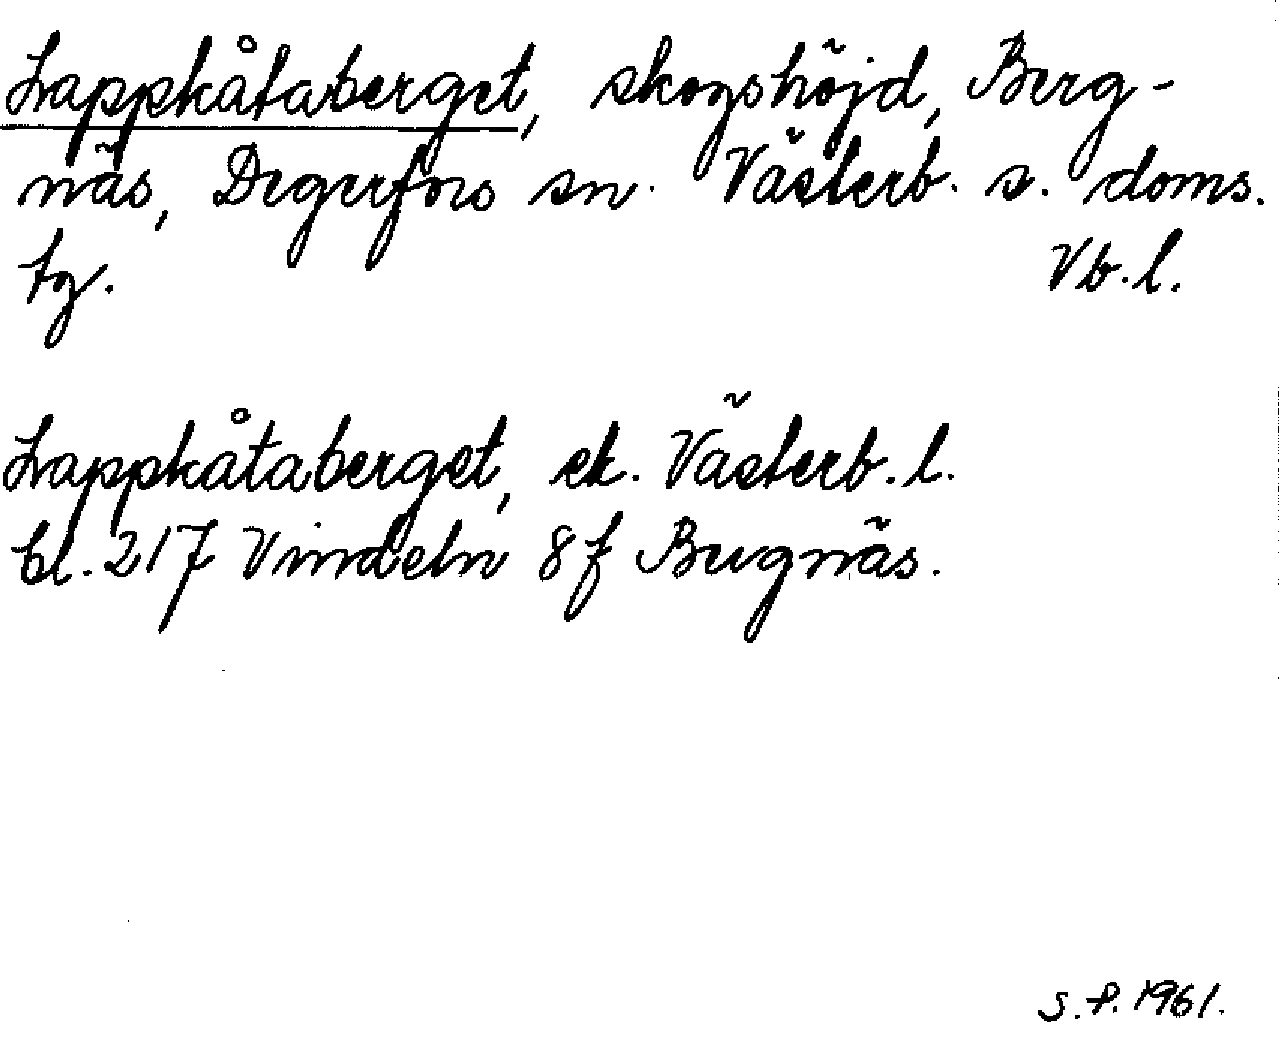 Lappkåtaberget, skogshöjd, Berg-
näs, Degerfors sn. Västerb. s. doms.
tg. Vb.l.
Lappkåtaberget, ek. Västerb.l.
bl. 217 Vindeln 8f Bergnäs.
S.P. 1961.